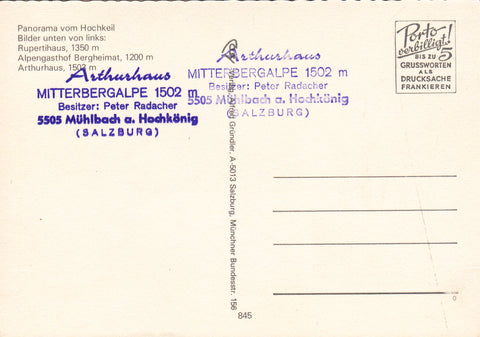 Panorama vom Hochkeil
Bilder unten von links:
Rupertihaus, 1350 m
Alpengasthof Bergheimat, 1200 m
Arthurhaus, 1502 m
Arthurhaus
MITTERBERGALPE 1502 m
Besitzer: Peter Radacher
5505 Mühlbach a. Hochkönig
(SALZBURG)
Arthurhaus
MITTERBERGALPE 1502 m
Besitzer: Peter Radacher
5505 Mühlbach a. Hochkönig
(SALZBURG)
Alfred Gründler, A-5013 Salzburg, Münchner Bundesstr. 156
845
Porto
verbilligt!
BIS ZU 5
GRUSSWORTEN
ALS
DRUCKSACHE
FRANKIEREN
0